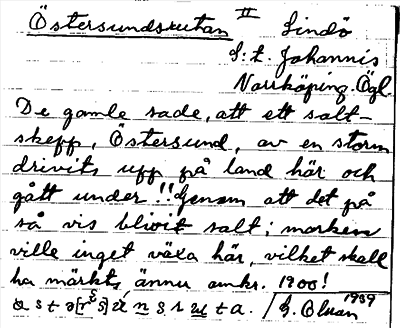 Östersundsrutan II Lindö
S:t. Johannis
Norrköping. Ögl.
De gamle sade, att ett salt-
skepp, Östersund, av en storm
drivits upp på land här och
gått under!! Genom att det på
så vis blivit salt i marken
ville inget växa här, vilket skall
ha märkts ännu omkr. 1900!
G. Olsson 1939